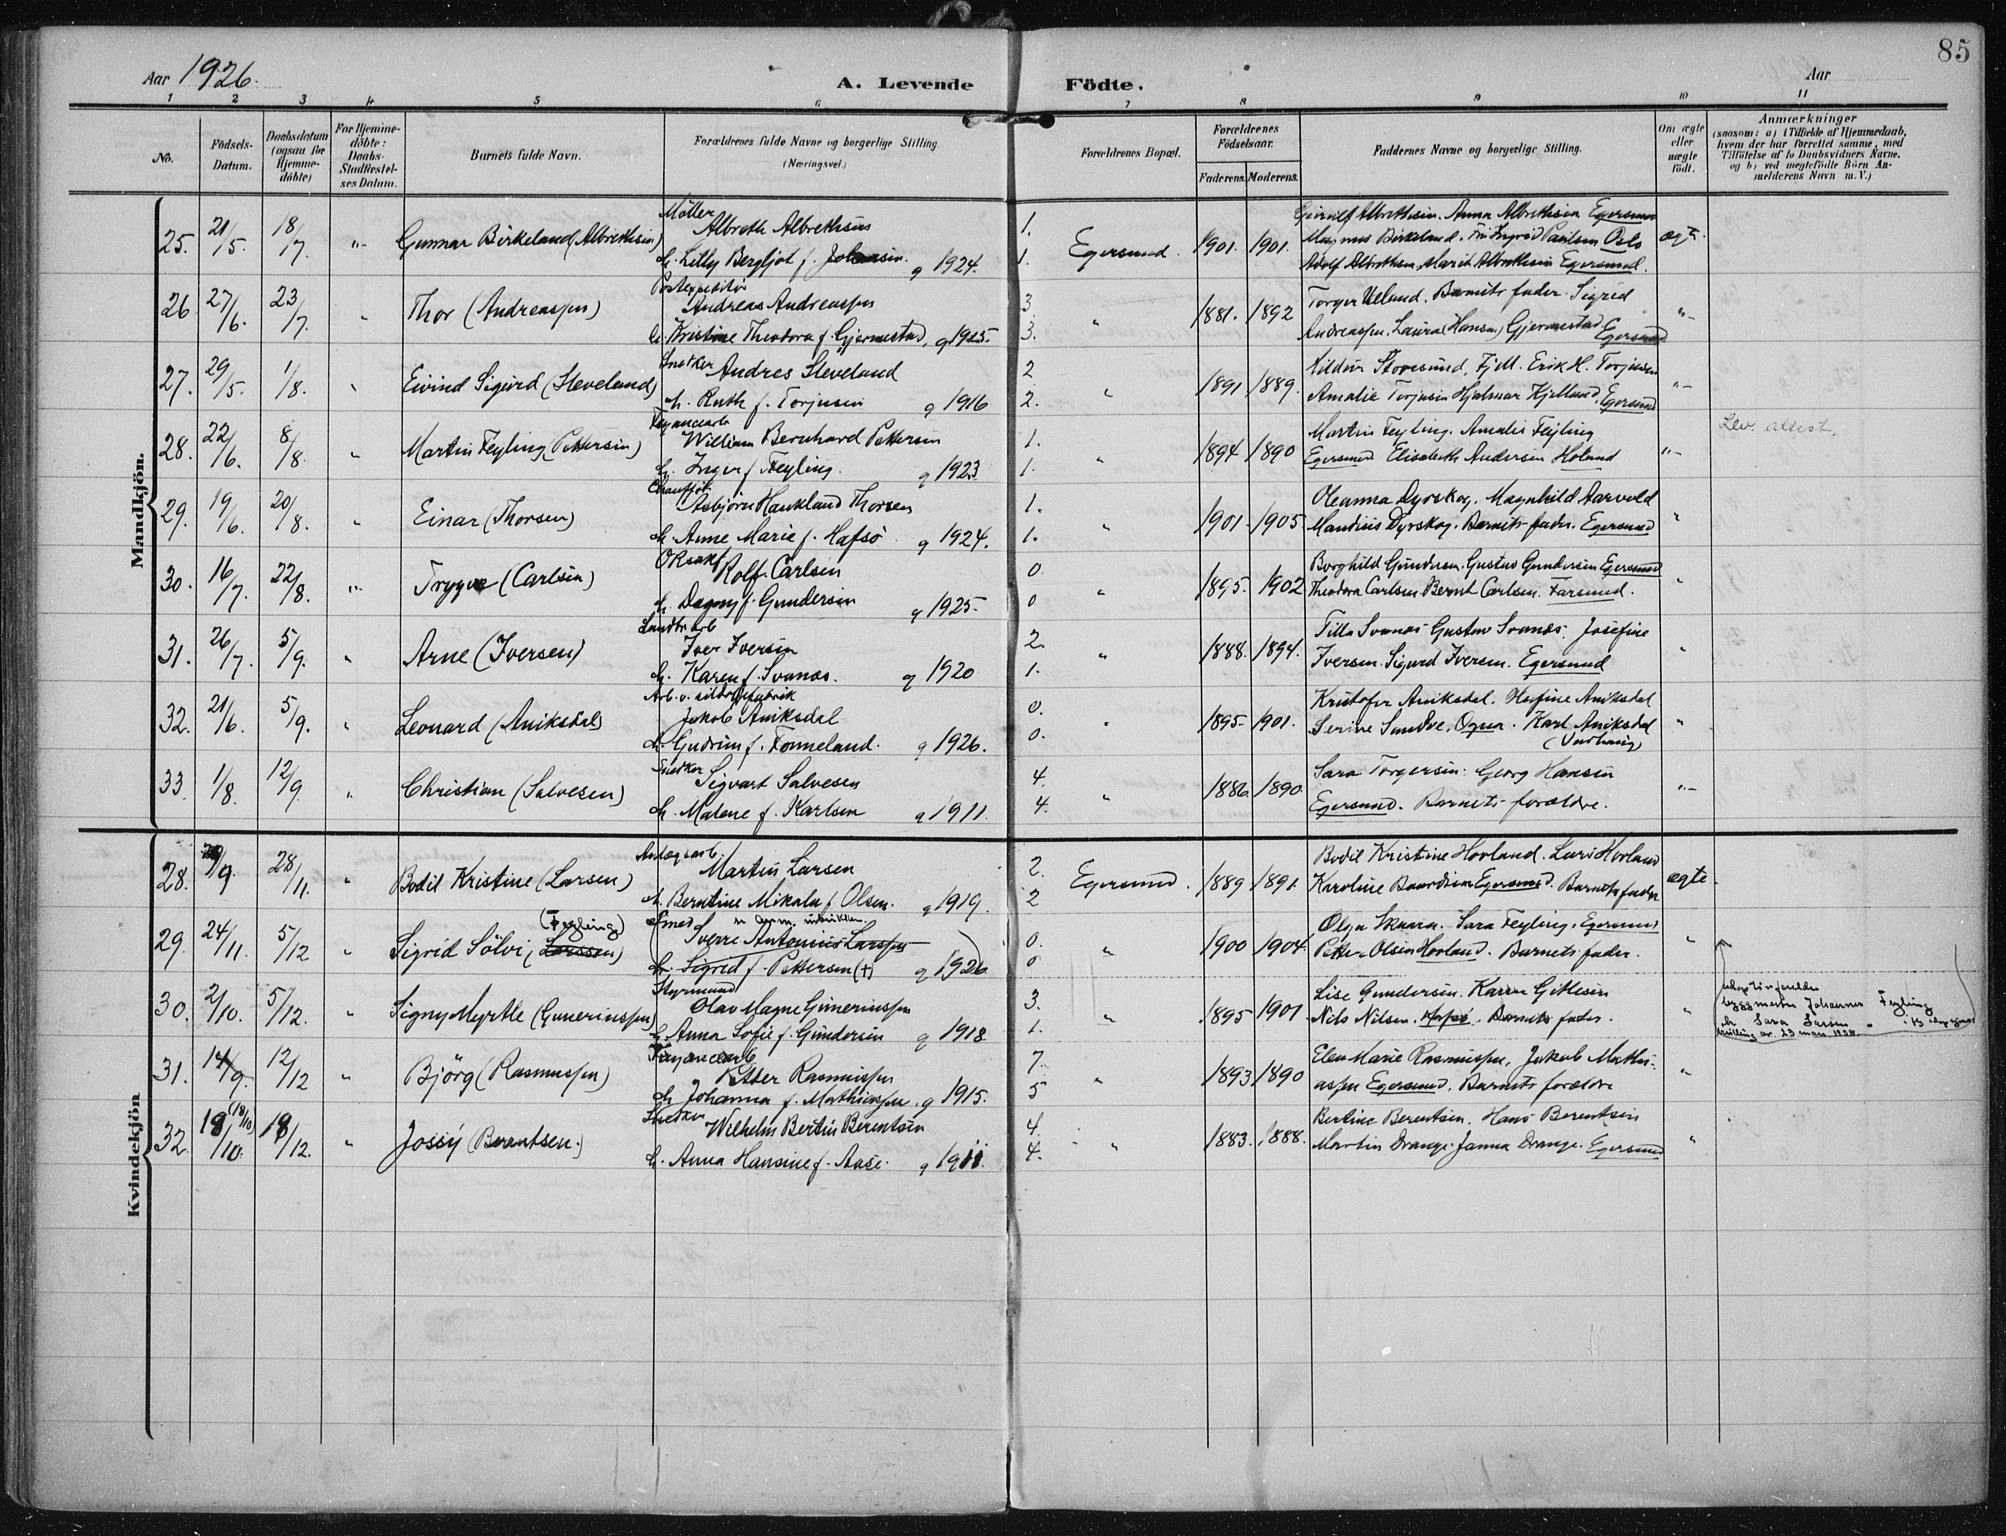 85
Aar 1926.
A. Levende Födte.
Aar
1 2 3 4 5 6 7 8 9 10 11
No.
Födsels-Datum.
Daabsdatum (ogsaa for Hjemme-döbte)
For Hjemme-döbte: Daabs-Stadfæstel-ses Datum.
Barnets fulde Navn.
Forældrenes fulde Navne og borgerlige Stilling (Næringsvei.)
Forældrenes Bopæl.
Forældrenes Födselsaar.
Faderens. Moderens.
Faddernes Navne og borgerlige Stilling.
Om ægte eller uægte født.
Anmærkninger
(saasom: a) i Tilfælde af Hjemmedaab,
hvem der har forrettet samme, med
Tilföielse af to Daabsvidners Navne.
og b) ved uægtefödte Börn An-
melderens Navn m. V.)
Mandkjön.
25. 21/5. 18/7. Gunnar Birkeland (Albrethsen)
Møller
Albreth Albrethsen
h. Lilly Bergljot f. g 1924.
1. 1. Egersund. 1901. 1901.
Albrethsen. Anna Albrethsen Egersund
Magnus Birkeland. Paulsen Oslo
Adolf Albrethsen Marit Albrethsen Egersund.
26 27/6. 23/7. Thor (Andreassen)
Andreas Andreassen
h. Kristine Theodora f. Gjermestad, g 1915.
3. 3. 1881. 1892
Torger Ueland. Barnets fader. Sigrid
Andreassen. Laura (Hansen) Gjermestad Egersund
27. 29/5. 1/8. Eivind Sigurd (Sleveland)
Snekker Andres Sleveland
h. Ruth f. Torjusen g 1916
2 2. 1891 1889.
Erik H. Torjusen
Amalie Torjusen Hjalmar Kjelland. Egersund
28. 22/6. 8/8. Martin Feyling (Pettersen)
Fayancearb
William Bernhard Pettersen
h. Inger f. Feyling. g 1923
1. 1. 1894 1890
Martin Feyling. Amalie Feyling
Egersund Elisabeth Andersen
Lev. attest.
29. 19/6. 20/8. Einar (Thorsen)
Chauffør
Asbjørn Haukland Thorsen
h. Anne Marie f. Hafsö g 1924.
1. 1. 1901. 1905
Oleanna Dyrskog. Magnhild Aarvold
Mandius Dyrskog. Barnets fader. Egersund
30. 16/7. 22/8. Trygve (Carlsen)
Rolf Carlsen
h. Dagny f. Gundersen g 1925.
0. 0 1895. 1902
Borghild Gundersen. Gustav Gundersen Egersund
Theodora Carlsen Bernt Carlsen. Farsund.
31. 26/7. 5/9. Arne (Iversen)
Iver Iversen
h. Karen f. Svanæs. g 1920
2. 1. 1888. 1894.
Tilla Svanæs Gustav Svanæs. Josefine
Iversen. Sigurd Iversen. Egersund
32. 21/6. 5/9. Leonard (Aniksdal)
Jakob Aniksdal
h. Gudrun f. Tonneland. g 1926.
0. 0. 1895- 1901.
Kristofer Aniksdal. Aniksdal
Serine Sundve. Ogna. Karl Aniksdal
33. 1/8. 12/9. Christian (Salvesen)
Snekker
Sigvart Salvesen
h. Malene f. Karlsen g 1911.
4. 4. 1886 1890.
Sara Torgersen. Georg Hansen
Egersund. Barnets forældre.
Kvindekjön
28. /9. 28/11. Bodil Kristine (Larsen)
Martin Larsen
h. Berntine Mikala f Olsen. g 1919.
2. 2 Egersund. 1889 1891. ægte
Bodil Kristine Hovland. Lars Hovland
Karoline Egersund. Barnets fader
29. 24/11. 5/12 Sigrid Sölvi (Larssen) (Feyling)
Smed
Sverre Antonius Larssen
h. Sigrid f. Pettersen (+) g 1926
0. 0 1900 1904.
Olga Skaara. Sara Feyling. Egersund
Petter Olsen Hovland. Barnets fader.
Johannes Feyling
Sara Larsen
30. 2/10. 5/12. Signy Myrtle (Gunerinssen)
Styrmand
Olav Magne Gunerinssen
h. Anna Sofie f. Gundersen g 1918
3. 1. 1895 1901
Lise Gundersen. Karen Gitlesen
Nils Nilsen. Barnets fader.
31. 14/9. 12/12 Björg (Rasmussen)
Fayancearb
Petter Rasmussen
h. Johanna f. Mathiassen. g 1915.
7. 5 1893 1890
Elen Marie Rasmussen, Jakob Mathi-
assen Egersund. Barnets forældre
32. 18/10. (18/10) 18/12. Jossy (Berentsen.)
Snekker
Wilhelm Bertin Berentsen
h. Anna Hansine f. Aase. g 1911.
4. 4. 1883. 1888.
Bertine Berentsen. Hans Berentsen
Martin Drange. Janna Drange. Egersund